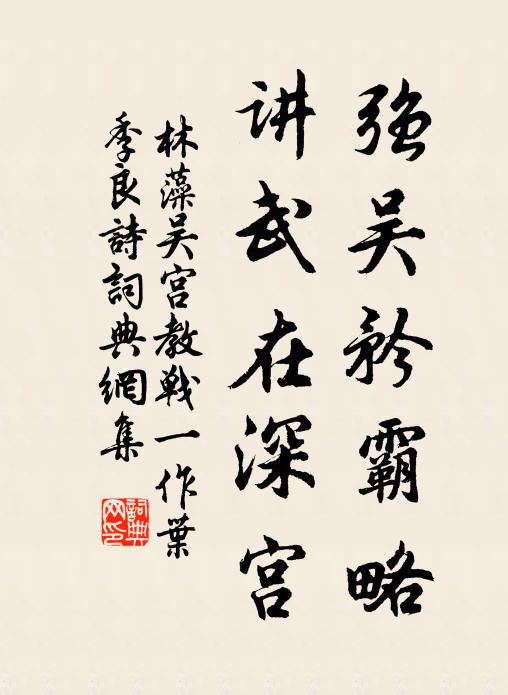 强吴矜霸略
讲武在深宫
林藻吴宫教戦一作葉
季良詩詞典網集
詞典网印